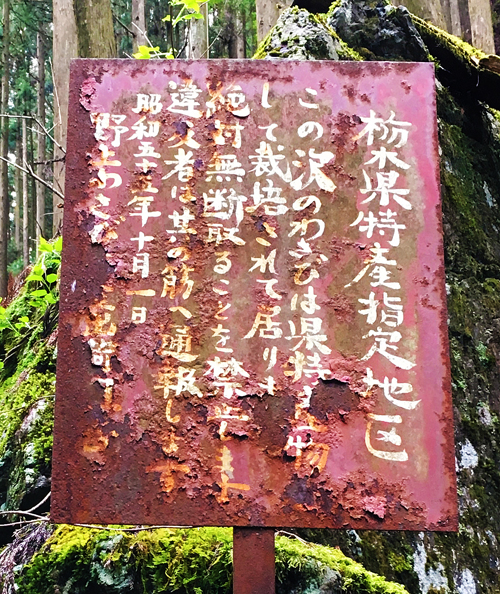 栃木県特産指定地区
この沢のわさびは県特産物
して栽培されて居りま
絶対無断取ることを禁止しま
違反者は其の筋へ通報します
昭和五十五年十月一日
野上わさび